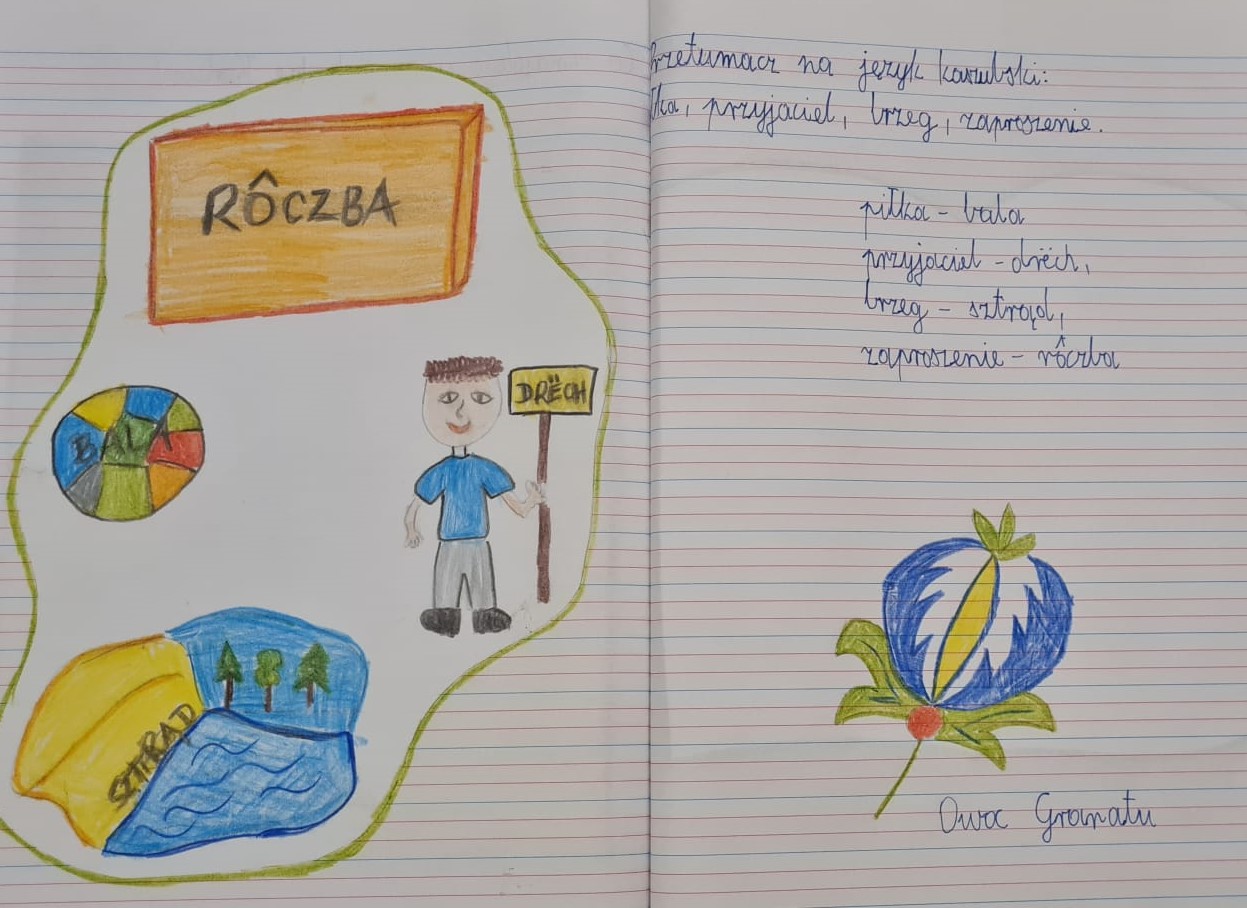 RÔCZBA
DRËCH
BALA
SZTRĄD
Przetumacz na język kaszubski:
łka, przyjaciel, brzeg, zaproszenie.
piłka - bala
przyjaciel - drëch,
brzeg - sztrąd,
zaproszenie - rôczba
Owoc Granatu